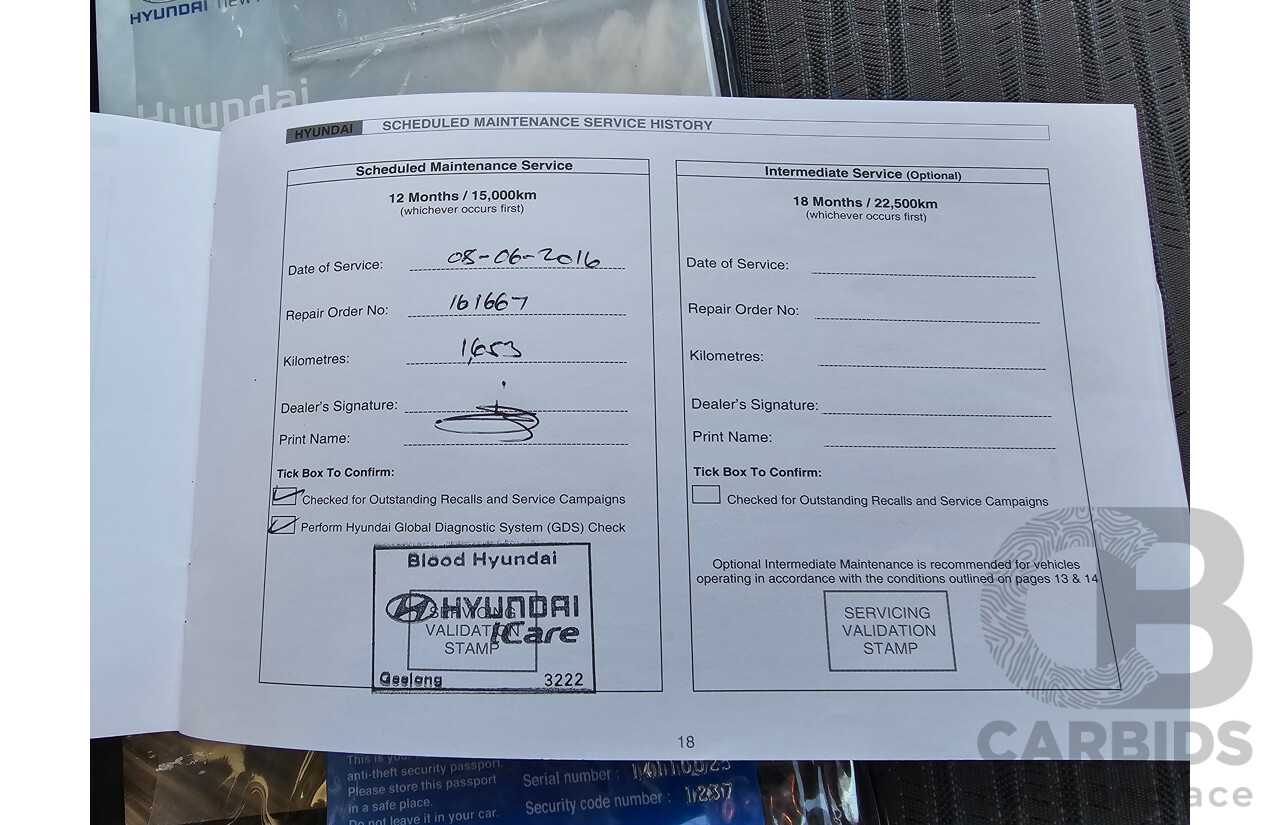 HYUNDAI
Hyundai
HYUNDAI SCHEDULED MAINTENANCE SERVICE HISTORY
Scheduled Maintenance Service
12 Months / 15,000km
(whichever occurs first)
Date of Service: 08-06-2016
Repair Order No: 161667
Kilometres: 1,653
Dealer's Signature:
Print Name:
Tick Box To Confirm:
Checked for Outstanding Recalls and Service Campaigns
Perform Hyundai Global Diagnostic System (GDS) Check
Blood Hyundai
HYUNDAI
iCare
SERVICING
VALIDATION
STAMP
Geelong 3222
Intermediate Service (Optional)
18 Months / 22,500km
(whichever occurs first)
Date of Service:
Repair Order No:
Kilometres:
Dealer's Signature:
Print Name:
Tick Box To Confirm:
Checked for Outstanding Recalls and Service Campaigns
Optional Intermediate Maintenance is recommended for vehicles
operating in accordance with the conditions outlined on pages 13 & 14
SERVICING
VALIDATION
STAMP
18
This is your
anti-theft security passport.
Please store this passport
in a safe place.
Do not leave it in your car.
Serial number :
Security code number :
CB
CARBIDS